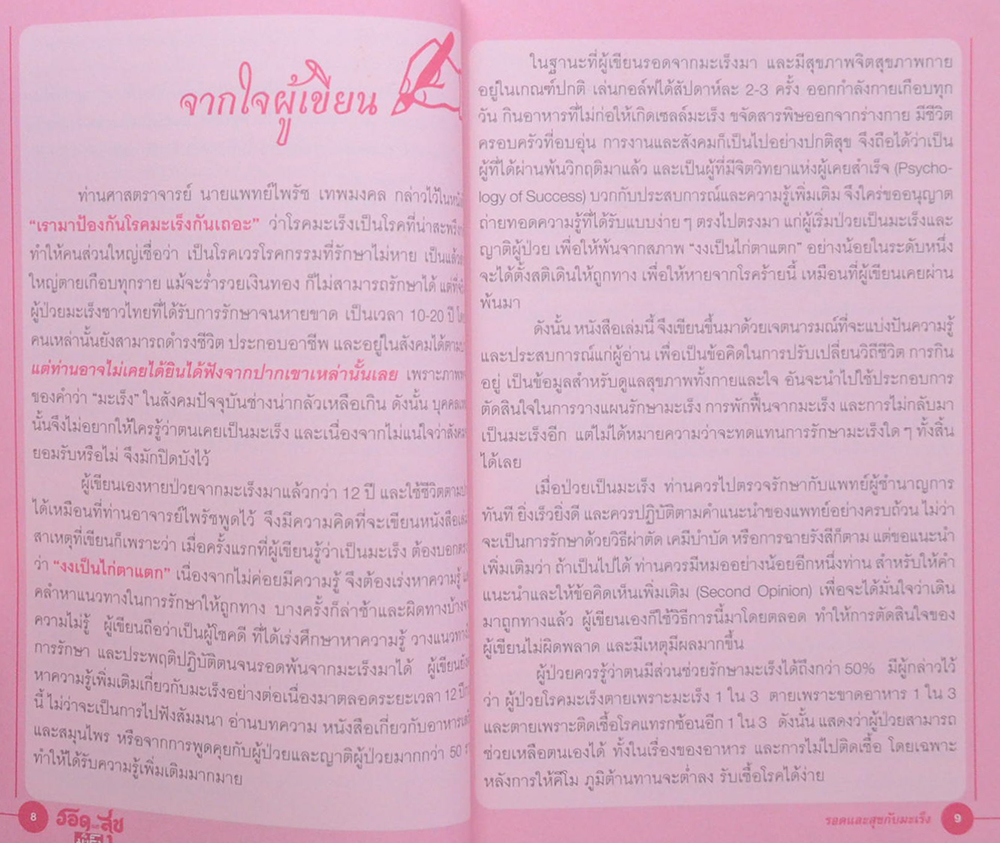 จากใจผู้เขียน
ท่านศาสตราจารย์ นายแพทย์ไพรัช เทพมงคล กล่าวไว้ใน
“เรามาป้องกันโรคมะเร็งกันเถอะ” ว่าโรคมะเร็งเป็นโรคที่
ทำให้คนส่วนใหญ่เชื่อว่า เป็นโรคเวรโรคกรรมที่รักษาไม่หาย เป็นแล้ว
ใหญ่ตายเกือบทุกราย แม้จะร่ำรวยเงินทอง ก็ไม่สามารถรักษาได้
ผู้ป่วยมะเร็งชาวไทยที่ได้รับการรักษาจนหายขาด เป็นเวลา 10-20 ปี
คนเหล่านั้นยังสามารถดำรงชีวิต ประกอบอาชีพ และอยู่ในสังคมได้
แต่ท่านอาจไม่เคยได้ยินได้ฟังจากปากเขาเหล่านั้นเลย เพราะ
ของคำว่า “มะเร็ง” ในสังคมปัจจุบันช่างน่ากลัวเหลือเกิน ดังนั้น
นั้นจึงไม่อยากให้ใครรู้ว่าตนเคยเป็นมะเร็ง และเนื่องจากไม่แน่ใจว่า
ยอมรับหรือไม่ จึงมักปิดบังไว้
ผู้เขียนเองหายป่วยจากมะเร็งมาแล้วกว่า 12 ปี และใช้ชีวิต
ได้เหมือนที่ท่านอาจารย์ไพรัชพูดไว้ จึงมีความคิดที่จะเขียนหนังสือ
สาเหตุที่เขียนก็เพราะว่า เมื่อครั้งแรกที่ผู้เขียนรู้ว่าเป็นมะเร็ง ต้องบอก
ว่า “งงเป็นไก่ตาแตก” เนื่องจากไม่ค่อยมีความรู้ จึงต้องเร่งหาความรู้
คลำหาแนวทางในการรักษาให้ถูกทาง บางครั้งก็ล่าช้าและผิดทางบ้าง
ความไม่รู้ ผู้เขียนถือว่าเป็นผู้โชคดี ที่ได้เร่งศึกษาหาความรู้ วางแนวทาง
การรักษา และประพฤติปฏิบัติตนจนรอดพ้นจากมะเร็งมาได้ ผู้เขียน
หาความรู้เพิ่มเติมเกี่ยวกับมะเร็งอย่างต่อเนื่องมาตลอดระยะเวลา 12 ปี
นี้ ไม่ว่าจะเป็นการไปฟังสัมมนา อ่านบทความ หนังสือเกี่ยวกับอาหาร
และสมุนไพร หรือจากการพูดคุยกับผู้ป่วยและญาติผู้ป่วยมากกว่า 50
ทำให้ได้รับความรู้เพิ่มเติมมากมาย
8
ในฐานะที่ผู้เขียนรอดจากมะเร็งมา และมีสุขภาพจิตสุขภาพกาย
อยู่ในเกณฑ์ปกติ เล่นกอล์ฟได้สัปดาห์ละ 2-3 ครั้ง ออกกำลังกายเกือบทุก
วัน กินอาหารที่ไม่ก่อให้เกิดเซลล์มะเร็ง ขจัดสารพิษออกจากร่างกาย มีชีวิต
ครอบครัวที่อบอุ่น การงานและสังคมก็เป็นไปอย่างปกติสุข จึงถือได้ว่าเป็น
ผู้ที่ได้ผ่านพ้นวิกฤติมาแล้ว และเป็นผู้ที่มีจิตวิทยาแห่งผู้เคยสำเร็จ (Psycho-
logy of Success) บวกกับประสบการณ์และความรู้เพิ่มเติม จึงใคร่ขออนุญาต
ถ่ายทอดความรู้ที่ได้รับแบบง่าย ๆ ตรงไปตรงมา แก่ผู้เริ่มป่วยเป็นมะเร็งและ
ญาติผู้ป่วย เพื่อให้พ้นจากสภาพ “งงเป็นไก่ตาแตก” อย่างน้อยในระดับหนึ่ง
จะได้ตั้งสติเดินให้ถูกทาง เพื่อให้หายจากโรคร้ายนี้ เหมือนที่ผู้เขียนเคยผ่าน
พ้นมา
ดังนั้น หนังสือเล่มนี้ จึงเขียนขึ้นมาด้วยเจตนารมณ์ที่จะแบ่งปันความรู้
และประสบการณ์แก่ผู้อ่าน เพื่อเป็นข้อคิดในการปรับเปลี่ยนวิถีชีวิต การกิน
อยู่ เป็นข้อมูลสำหรับดูแลสุขภาพทั้งกายและใจ อันจะนำไปใช้ประกอบการ
ตัดสินใจในการวางแผนรักษามะเร็ง การพักฟื้นจากมะเร็ง และการไม่กลับมา
เป็นมะเร็งอีก แต่ไม่ได้หมายความว่าจะทดแทนการรักษามะเร็งใด ๆ ทั้งสิ้น
ได้เลย
เมื่อป่วยเป็นมะเร็ง ท่านควรไปตรวจรักษากับแพทย์ผู้ชำนาญการ
ทันที ยิ่งเร็วยิ่งดี และควรปฏิบัติตามคำแนะนำของแพทย์อย่างครบถ้วน ไม่ว่า
จะเป็นการรักษาด้วยวิธีผ่าตัด เคมีบำบัด หรือการฉายรังสีก็ตาม แต่ขอแนะนำ
เพิ่มเติมว่า ถ้าเป็นไปได้ ท่านควรมีหมออย่างน้อยอีกหนึ่งท่าน สำหรับให้คำ
แนะนำและให้ข้อคิดเห็นเพิ่มเติม (Second Opinion) เพื่อจะได้มั่นใจว่าเดิน
มาถูกทางแล้ว ผู้เขียนเองก็ใช้วิธีการนี้มาโดยตลอด ทำให้การตัดสินใจของ
ผู้เขียนไม่ผิดพลาด และมีเหตุมีผลมากขึ้น
ผู้ป่วยควรรู้ว่าตนมีส่วนช่วยรักษามะเร็งได้ถึงกว่า 50% มีผู้กล่าวไว้
ว่า ผู้ป่วยโรคมะเร็งตายเพราะมะเร็ง 1 ใน 3 ตายเพราะขาดอาหาร 1 ใน 3
และตายเพราะติดเชื้อโรคแทรกซ้อนอีก 1 ใน 3 ดังนั้น แสดงว่าผู้ป่วยสามารถ
ช่วยเหลือตนเองได้ ทั้งในเรื่องของอาหาร และการไม่ไปติดเชื้อ โดยเฉพาะ
หลังการให้คีโม ภูมิต้านทานจะต่ำลง รับเชื้อโรคได้ง่าย
รอดและสุขกับมะเร็ง 9